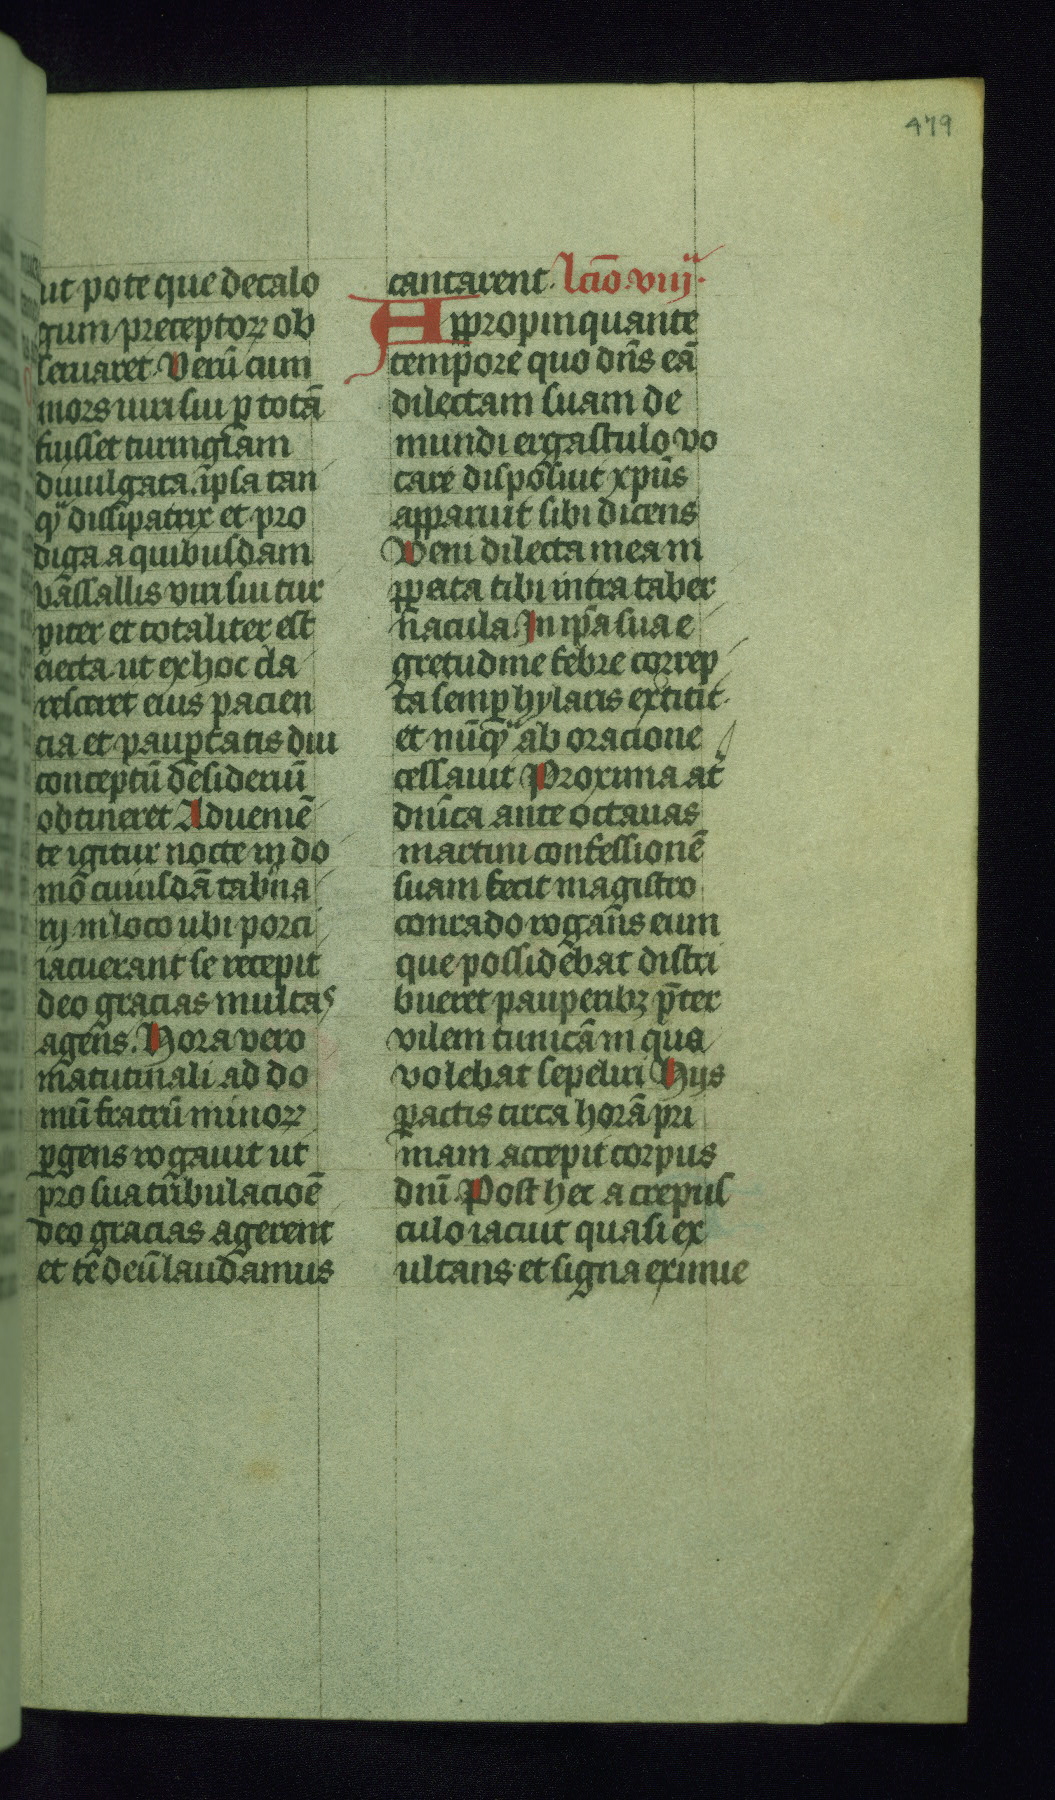 479
ut pote que decalo
gum preceptoꝝ ob
seruaret Verū cum
mors uiri sui ꝑ totā
fuisset turingiam
diuulgata. ip̄sa tan
qͣꝫ dissipatrix et pro
diga a quibusdam
vassallis uiri sui tur
piter et totaliter est
eiecta ut ex hoc cla
resceret eius pacien
cia et paupertatis diu
conceptū desideriū
obtineret Aduenie͞
te igitur nocte in do
mo cuiusdā tab̄na
rij in loco ubi porci
iacuerant se recepit
deo gracias multas
agens. Hora vero
matutinali ad do
mū fratrū minoꝝ
ꝑgens rogauit ut
pro sua tribulacioē
deo gracias agerent
et te deū laudamus
cantarent. lcio viij.
Appropinquante
tempore quo dn̄s eā
dilectam suam de
mundi ergastulo vo
care disposuit xpūs
apparuit sibi dicens
Veni dilecta mea in
p̄pata tibi intra taber
nacula. In ip̄a sua e
gretudine febre correp
ta semꝑ hylaris extitit
et nūqͣꝫ ab oracione
cessauit Proxima at̄
dnīca ante octauas
martini confessionē
suam fecit magistro
conrado rogans eum
que possidebat distri
bueret pauperibꝫ p̄ter
vilem tunicā in qua
volebat sepeliri Hijs
ꝑactis circa horā pri
mam accepit corpus
dnī Post hec a crepus
culo iacuit quasi ex
ultans et signa eximie